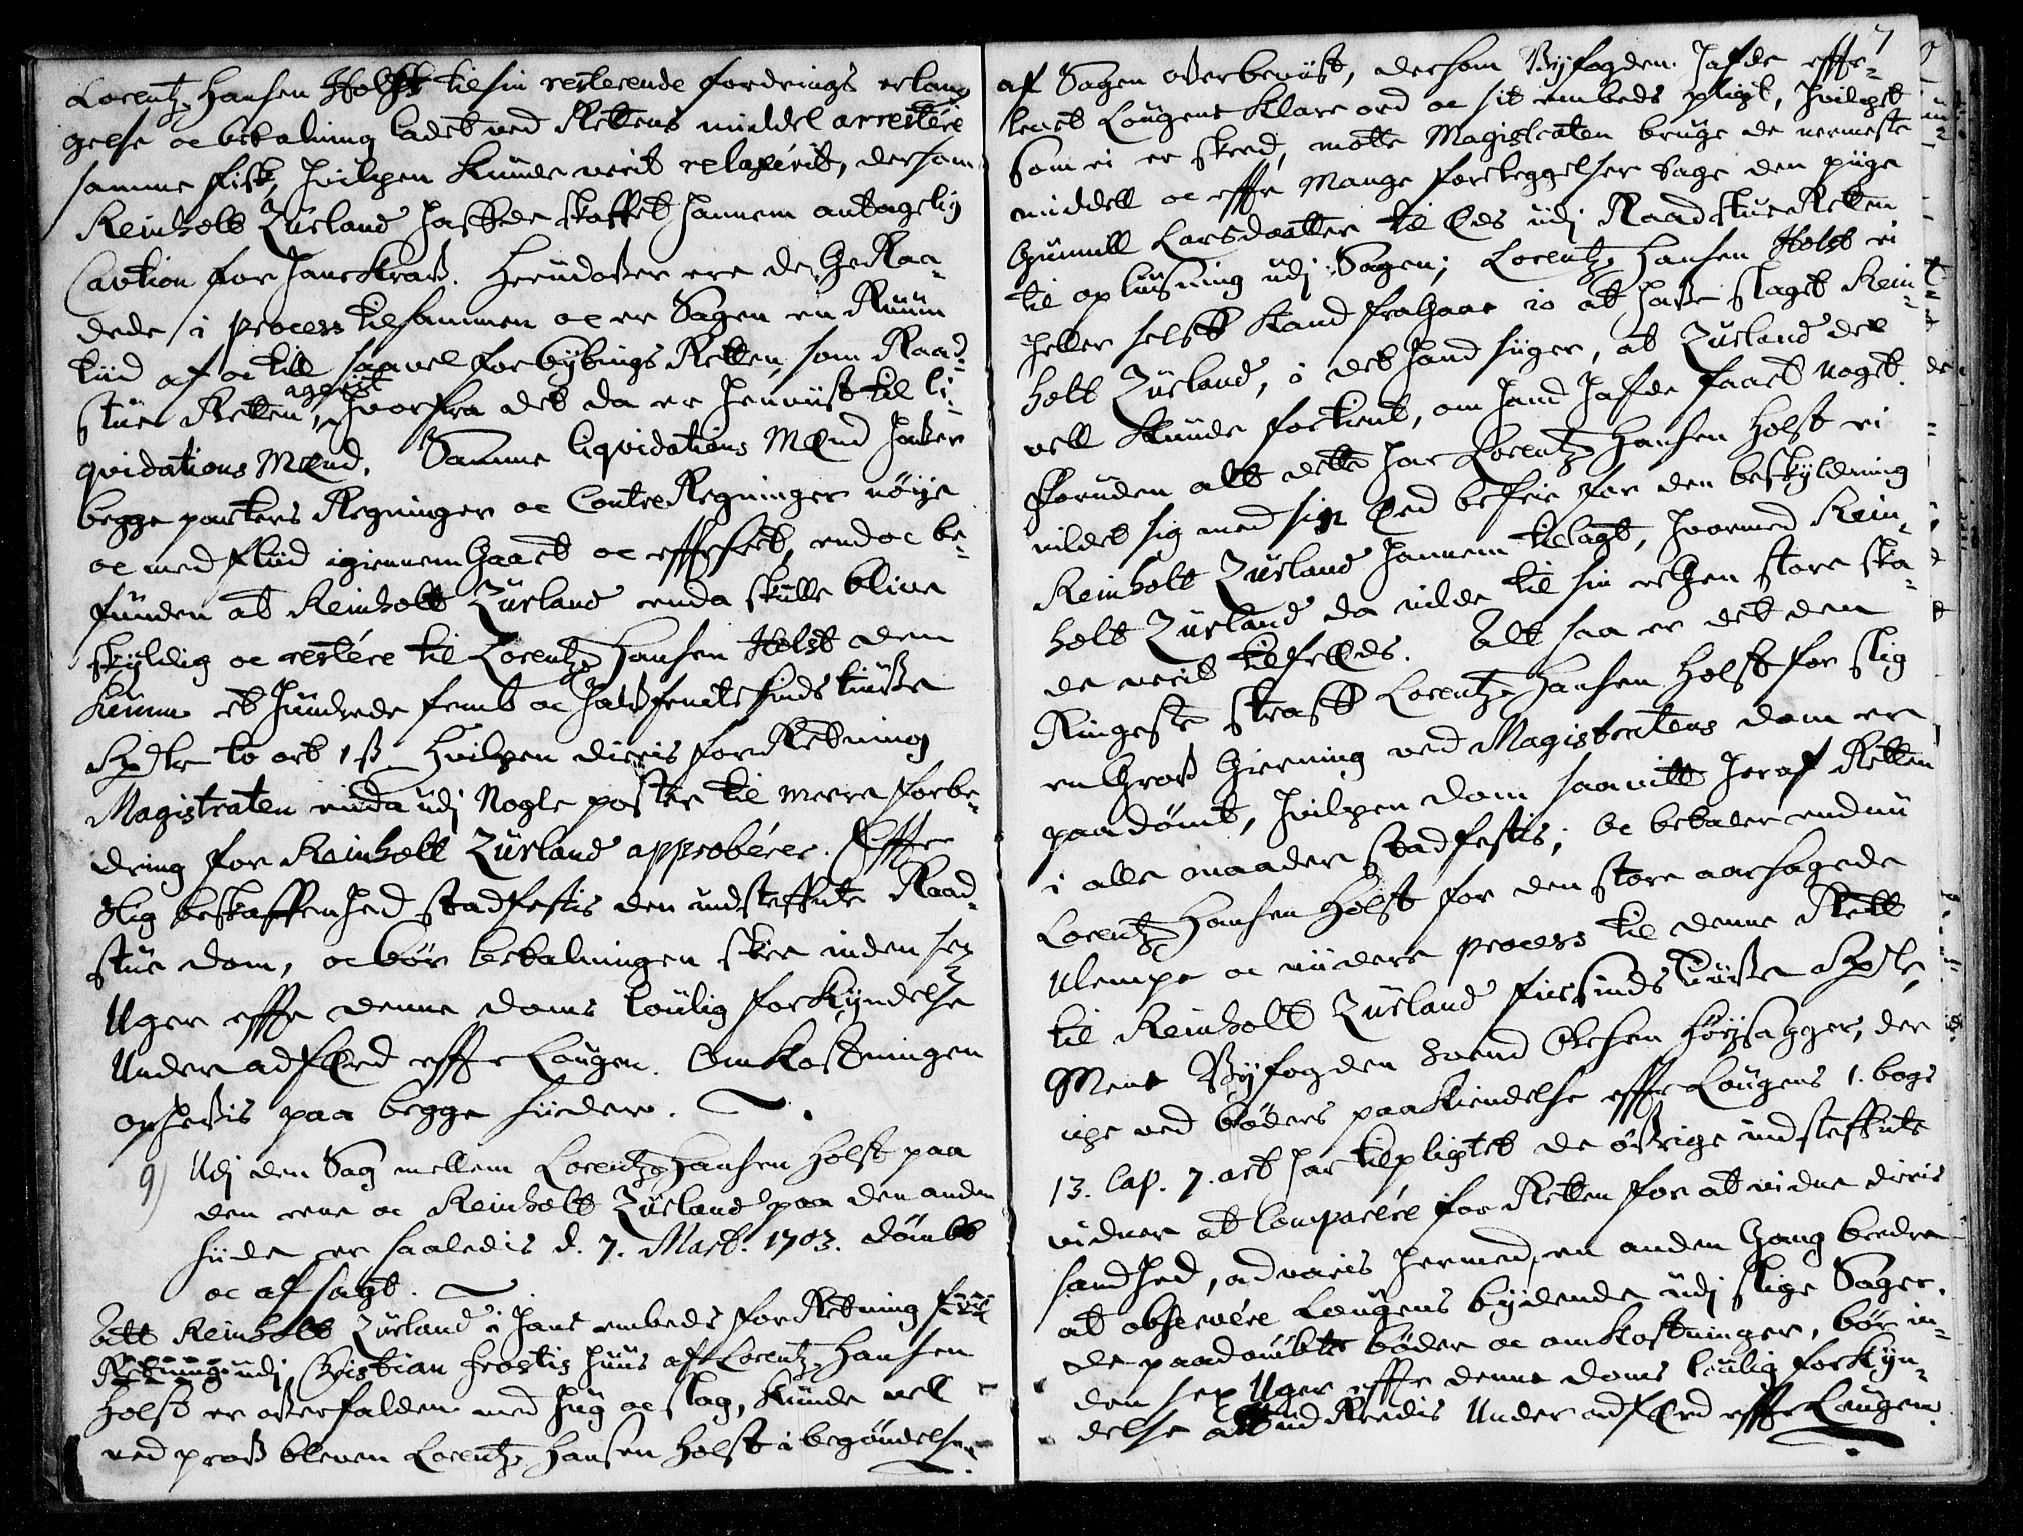 Lorentz Hansen Holst til sin resterende fordrings erlan-
gelse oc betalning ladet ved Rettens middel arrestére
samme fisk, hvilchen kunde verit relaxérit, dersom
Reinholt Zürland haffde skaffet hannem antagelig
Caution for hans Kraf. Herudofver ere de geRaa-
dede i process tilsammen oc er Sagen en Ruum
tiid af oc till saavel for bytings Retten, som Raad-
stue Retten agerit, hvorfra det da er henviist til li-
qvidations Mend. Samme liqvidations Mend hafver
begge parters Regninger oc ContraRegninger nöye
oc med fliid igiennemgaaet oc effterseet, end oc be-
funden at Reinholt Zürland enda skulle blive
skyldig oc restére til Lorentz Hansen Holst den
Summa et hundrede femt oc halffemtesinds tiufve
Rdlr to ort 1 s. Hvilchen dieris forRetning
Magistraten enda udj Nogle poster til meere forbe-
dring for Reinholt Zürland approbérer. Effter
slig beskaffenhed stadfestis den indsteffnte Raad-
stue dom, oc bör betalningen skee inden sex
Uger effter denne doms loulig forkyndelse
Under adferd effter Lougen. Omkostningen
ophefvis paa begge siider.
9) Udj den Sag mellem Lorentz Hansen Holst paa
den eene oc Reinholt Zürland paa den anden
siide er saaledis d. 7. Mart. 1703. dömbt
oc afsagt.
Att Reinholt Zürland i hans embeds forRetning
udj Christian frostis huus af Lorentz Hansen
Holst er ofverfalden med hug oc slag, kunde vel
ved prof bleven Lorentz Hansen Holst i begyndelsen
7
af Sagen ofverbeviist, dersom Byfogden hafde effter-
levet Lougens klare ord oc sit embeds pligt, hvilchet
som ei er skeed, motte Magistraten bruge de nermeste
middell oc effter Mange forleggelser tage den piige
Gunnill Larsdaatter til Eds udj Raadstue Retten
til oplüsning udj Sagen; Lorentz Hansen Holst ei
heller selff kand fragaae io at hafve slaget Rein-
holt Zürland, i det hand siiger, at Zürland det
vell kunde fortient, om hand hafde faaet noget.
Foruden alt dette har Lorentz Hansen Holst ei
vildet sig med sin Eed befrie for den beskyldning
Reinholt Zürland hannem tillagt, hvormed Rein-
holt Zürland da vilde til sin egen store ska-
de verit tilfreds. Alt saa er det den
Ringeste straff Lorentz Hansen Holst for slig
en grof gierning ved Magistratens dom er
paadömt, hvilchen dom saavitt heraf Retten
i alle maader stadfestis; Oc betaler endnu
Lorentz Hansen Holst for den store aarsagede
Ulempe oc viidere process til denne Rett
til Reinholt Zürland fiirsinds tiufve Rdlr
Mens Byfogden Svend Olesen Höysagger, der
iche ved böders paakiendelse effter Lougens 1. bogs
13. Cap. 7. art har tilpligtet de öfvrige indsteffnte
vidner at comparére for Retten for at vidne dieris
sandhed, advaris hermed, en anden gang bedre
at observére Lougens bydende udj slige Sager.
De paadömbte böder oc omkostninger, bör in-
den sex Uger effter denne doms loulig forkyn-
delse at udRedis Under adferd effter Lougen.